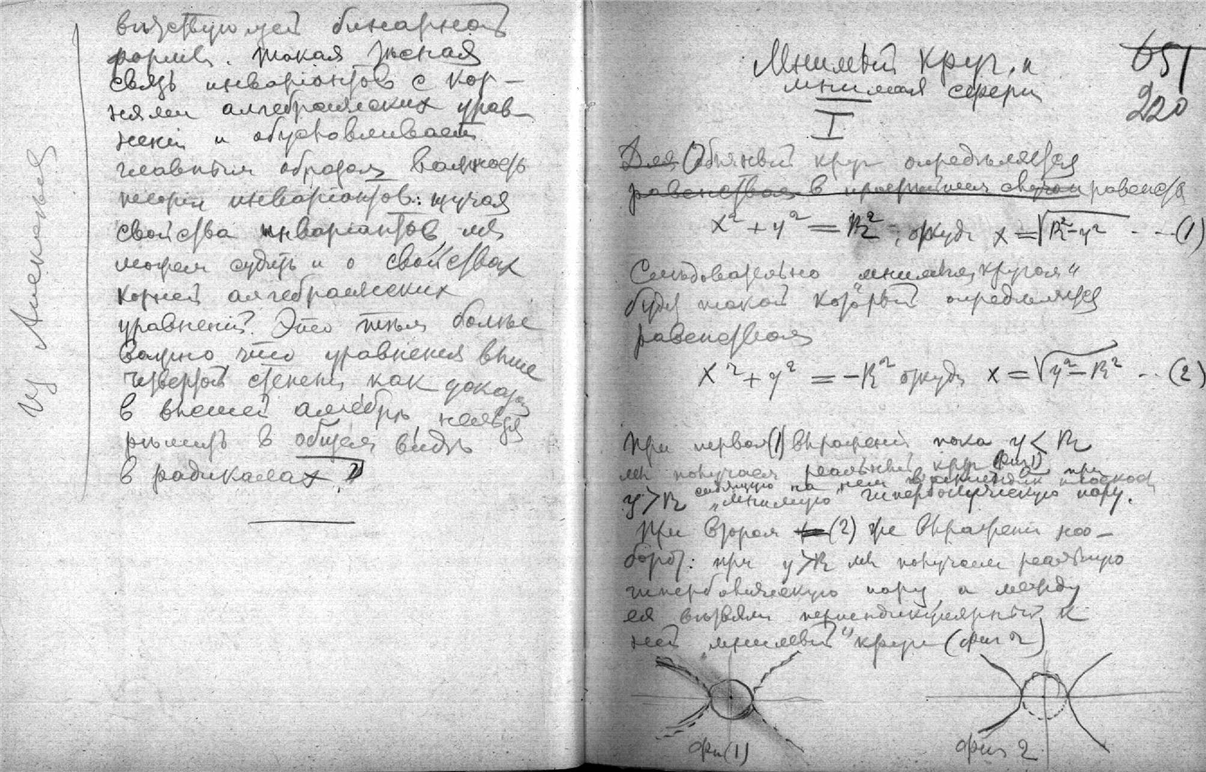 бинарной
форме. Такая тесная
связь инварiантов с кор-
нями алгебраических урав-
и обусловливает
главным образом важность
теорiи инварiантов: изучая
свойства инварiантов мы
можем судить и о свойствах
корней алгебраических
уравненiй. Это тем более
важно что уравненiя выше
четвертой степени как доказ
в высшей алгебрѣ нельзя
рѣшить в общем видѣ
в радикалах.
Мнимый круг и
мнимая сфера
651
220
I
Для Обычный круг опредѣляется
равенством
x² + y² = R², откуда x = √R²-y² --- (1)
Слѣдовательно мнимым „кругом"
будет такой который опредѣляется
равенством
x² + y² = -R² откуда x = √y²-R² -- (2)
При первом (1) выраженiи пока y < R
мы получаем реальный круг (фиг 1) при
y > R „мнимую" гиперболическую пару.
При втором (2) же выраженiи нао-
борот: при y > R мы получаем реальную
гиперболическую пару, а между
ея вѣтвями перпендикулярный к
ней „мнимый" круг (фиг 2)
фиг (1)
фиг 2